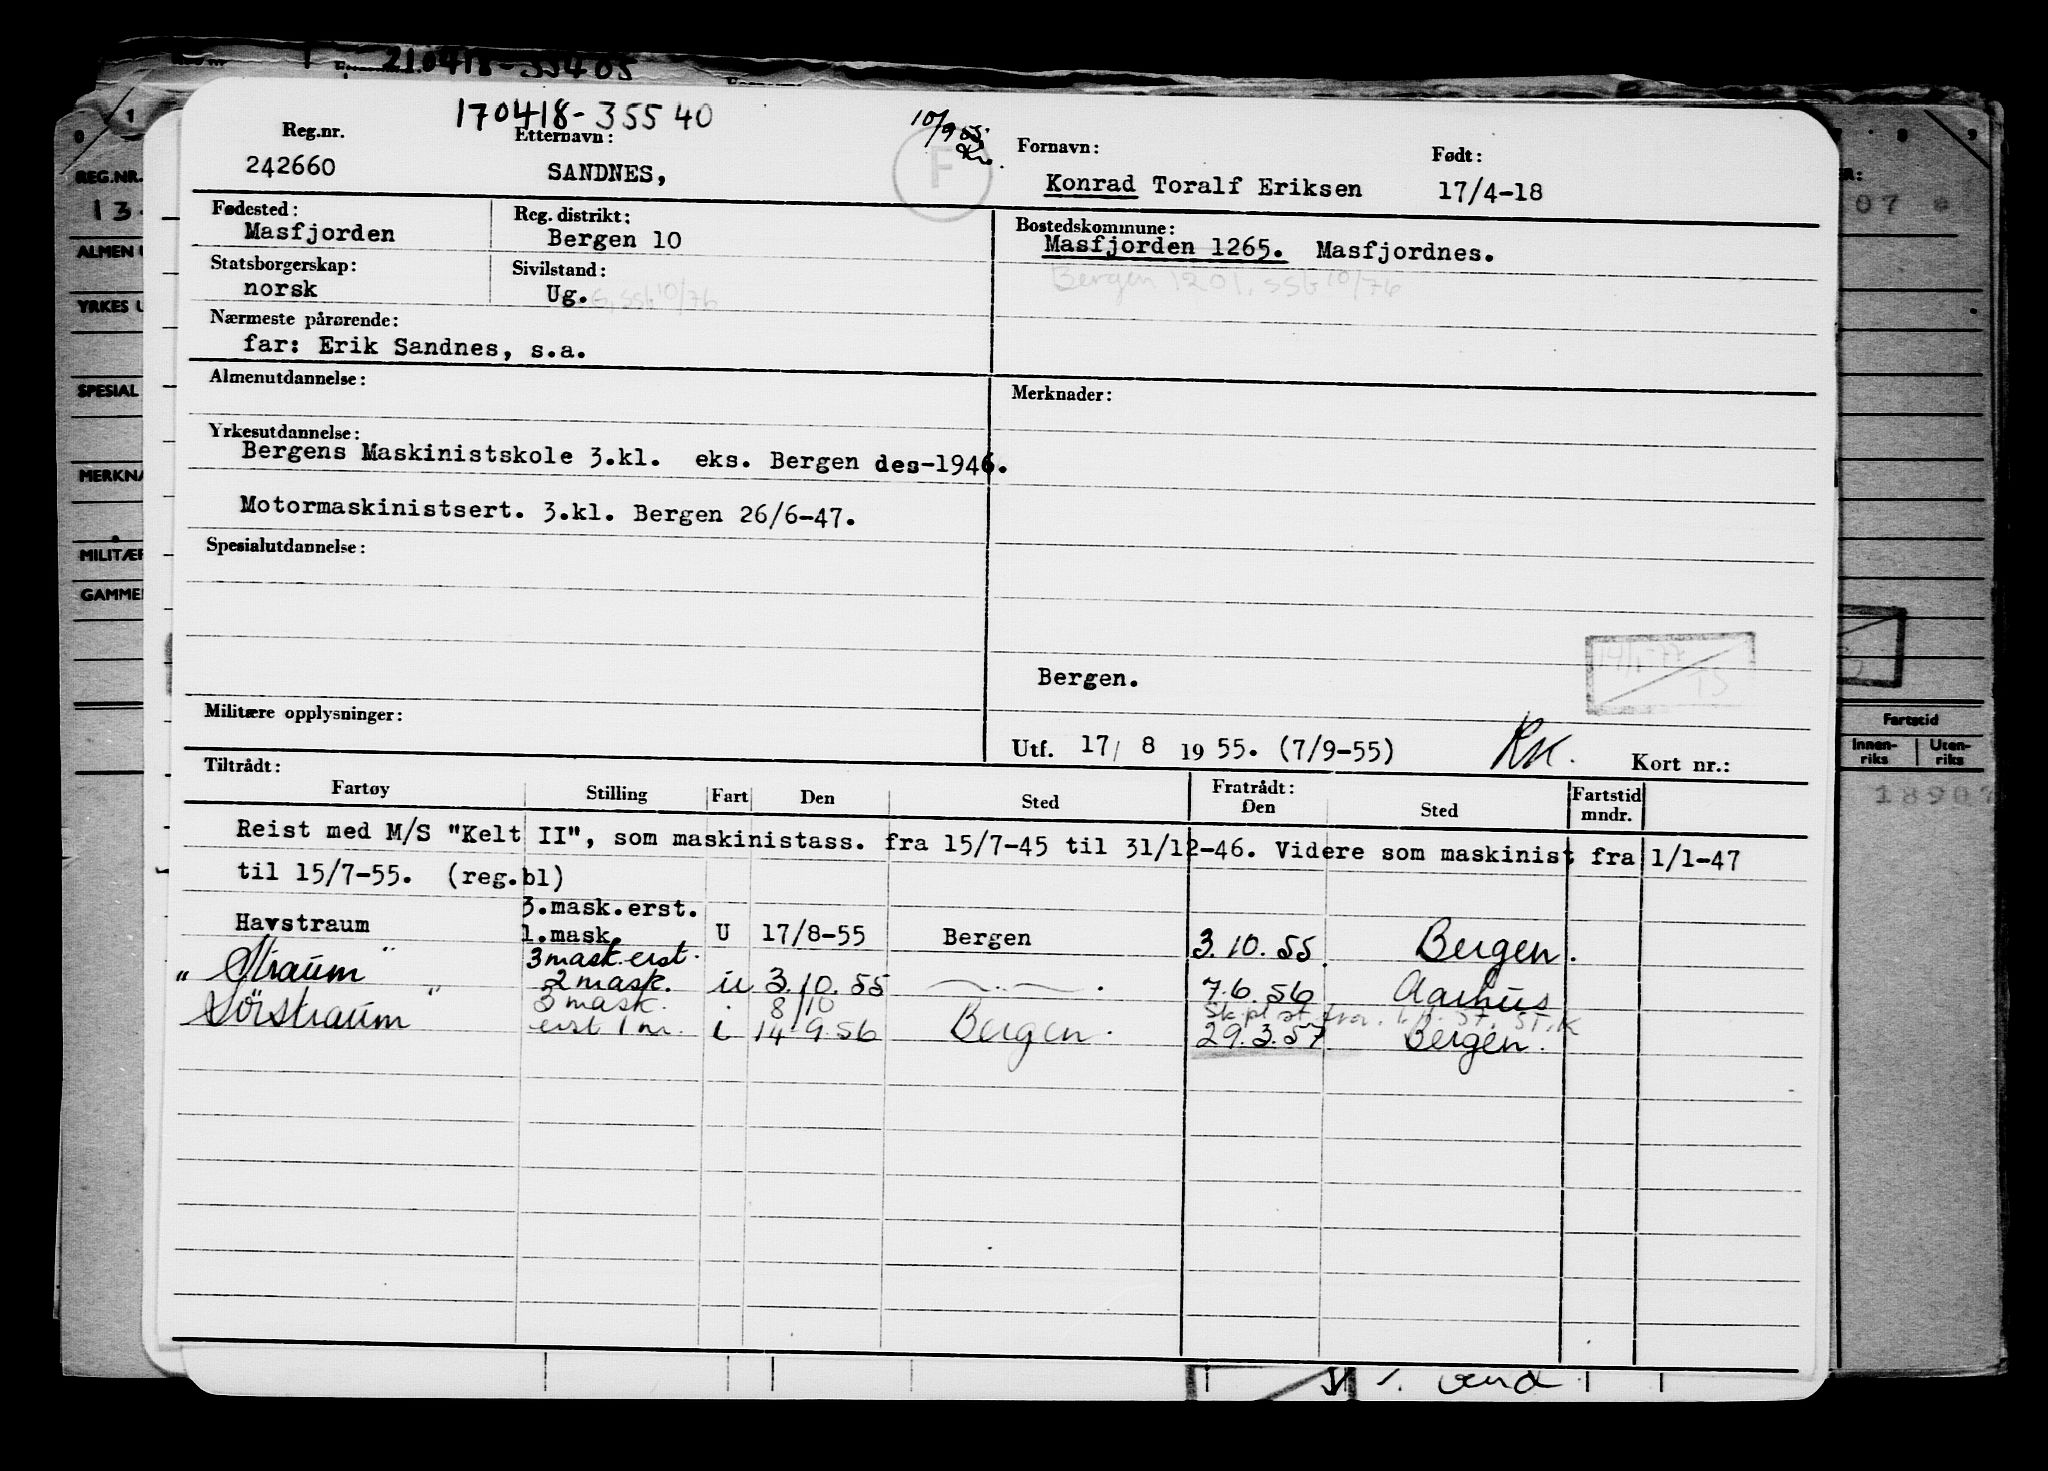 210418-35405
170418-35540
Reg.nr. Etternavn: 10/9 55 Fornavn: Født:
242660 SANDNES, F Konrad Toralf Eriksen 17/4-18
Fødested: Reg. distrikt: Bostedskommune:
Masfjorden Bergen 10 Masfjorden 1265. Masfjordnes.
Statsborgerskap: Sivilstand: Bergen 1201, SSb 10/76
norsk Ug. G, SSb 10/76
Nærmeste pårørende:
far: Erik Sandnes, s.a.
Almenutdannelse: Merknader:
Yrkesutdannelse:
Bergens Maskinistskole 3.kl. eks. Bergen des-1946.
Motormaskinistsert. 3.kl. Bergen 26/6-47.
Spesialutdannelse:
Bergen.
Militære opplysninger:
Utf. 17/ 8 1955. (7/9-55) RK. Kort nr.:
Tiltrådt: Fratrådt:
Fartøy Stilling Fart Den Sted Den Sted Fartstid mndr.
Reist med M/S "Kelt II", som maskinistass. fra 15/7-45 til 31/12-46. Videre som maskinist fra 1/1-47
til 15/7-55. (reg.bl)
3.mask.erst.
Havstraum 1.mask. U 17/8-55 Bergen 3.10.55. Bergen.
3 mask. erst.
" Straum " 2 mask. u 3.10.55 — " — . 7.6.56 Aarhus
3 mask. 8/10
Sörstraum " erst 1 m. i 14 9 56 Bergen. 29.3.57 Bergen.
REG.NR.
13
ALMEN U
YRKES U
SPESIAL
MERKNA
MILITÆR
GAMMEL
07
Fartstid
Innen-riks Uten-riks
18907